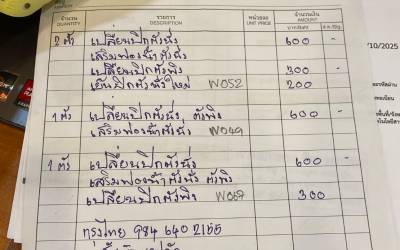 จำนวน รายการ หน่วยละ จำนวนเงิน
QUANTITY DESCRIPTION UNIT PRICE AMOUNT
2 ตัว เปลี่ยนปีกตัวนั่ง 600 -
เสริมฟองน้ำตัวนั่ง
เปลี่ยนปีกตัวพิง 300 -
เย็บปีกตัวใหม่ W052 200
/10/2025
1 ตัว เปลี่ยนปีกตัวนั่ง, ตัวพิง 600 -
เสริมฟองน้ำตัวนั่ง W049
1 ตัว เปลี่ยนปีกตัวนั่ง 600 -
เสริมฟองน้ำตัวนั่ง ตัวพิง
เปลี่ยนปีกตัวพิง W067 300
กรุงไทย 984 640 2155